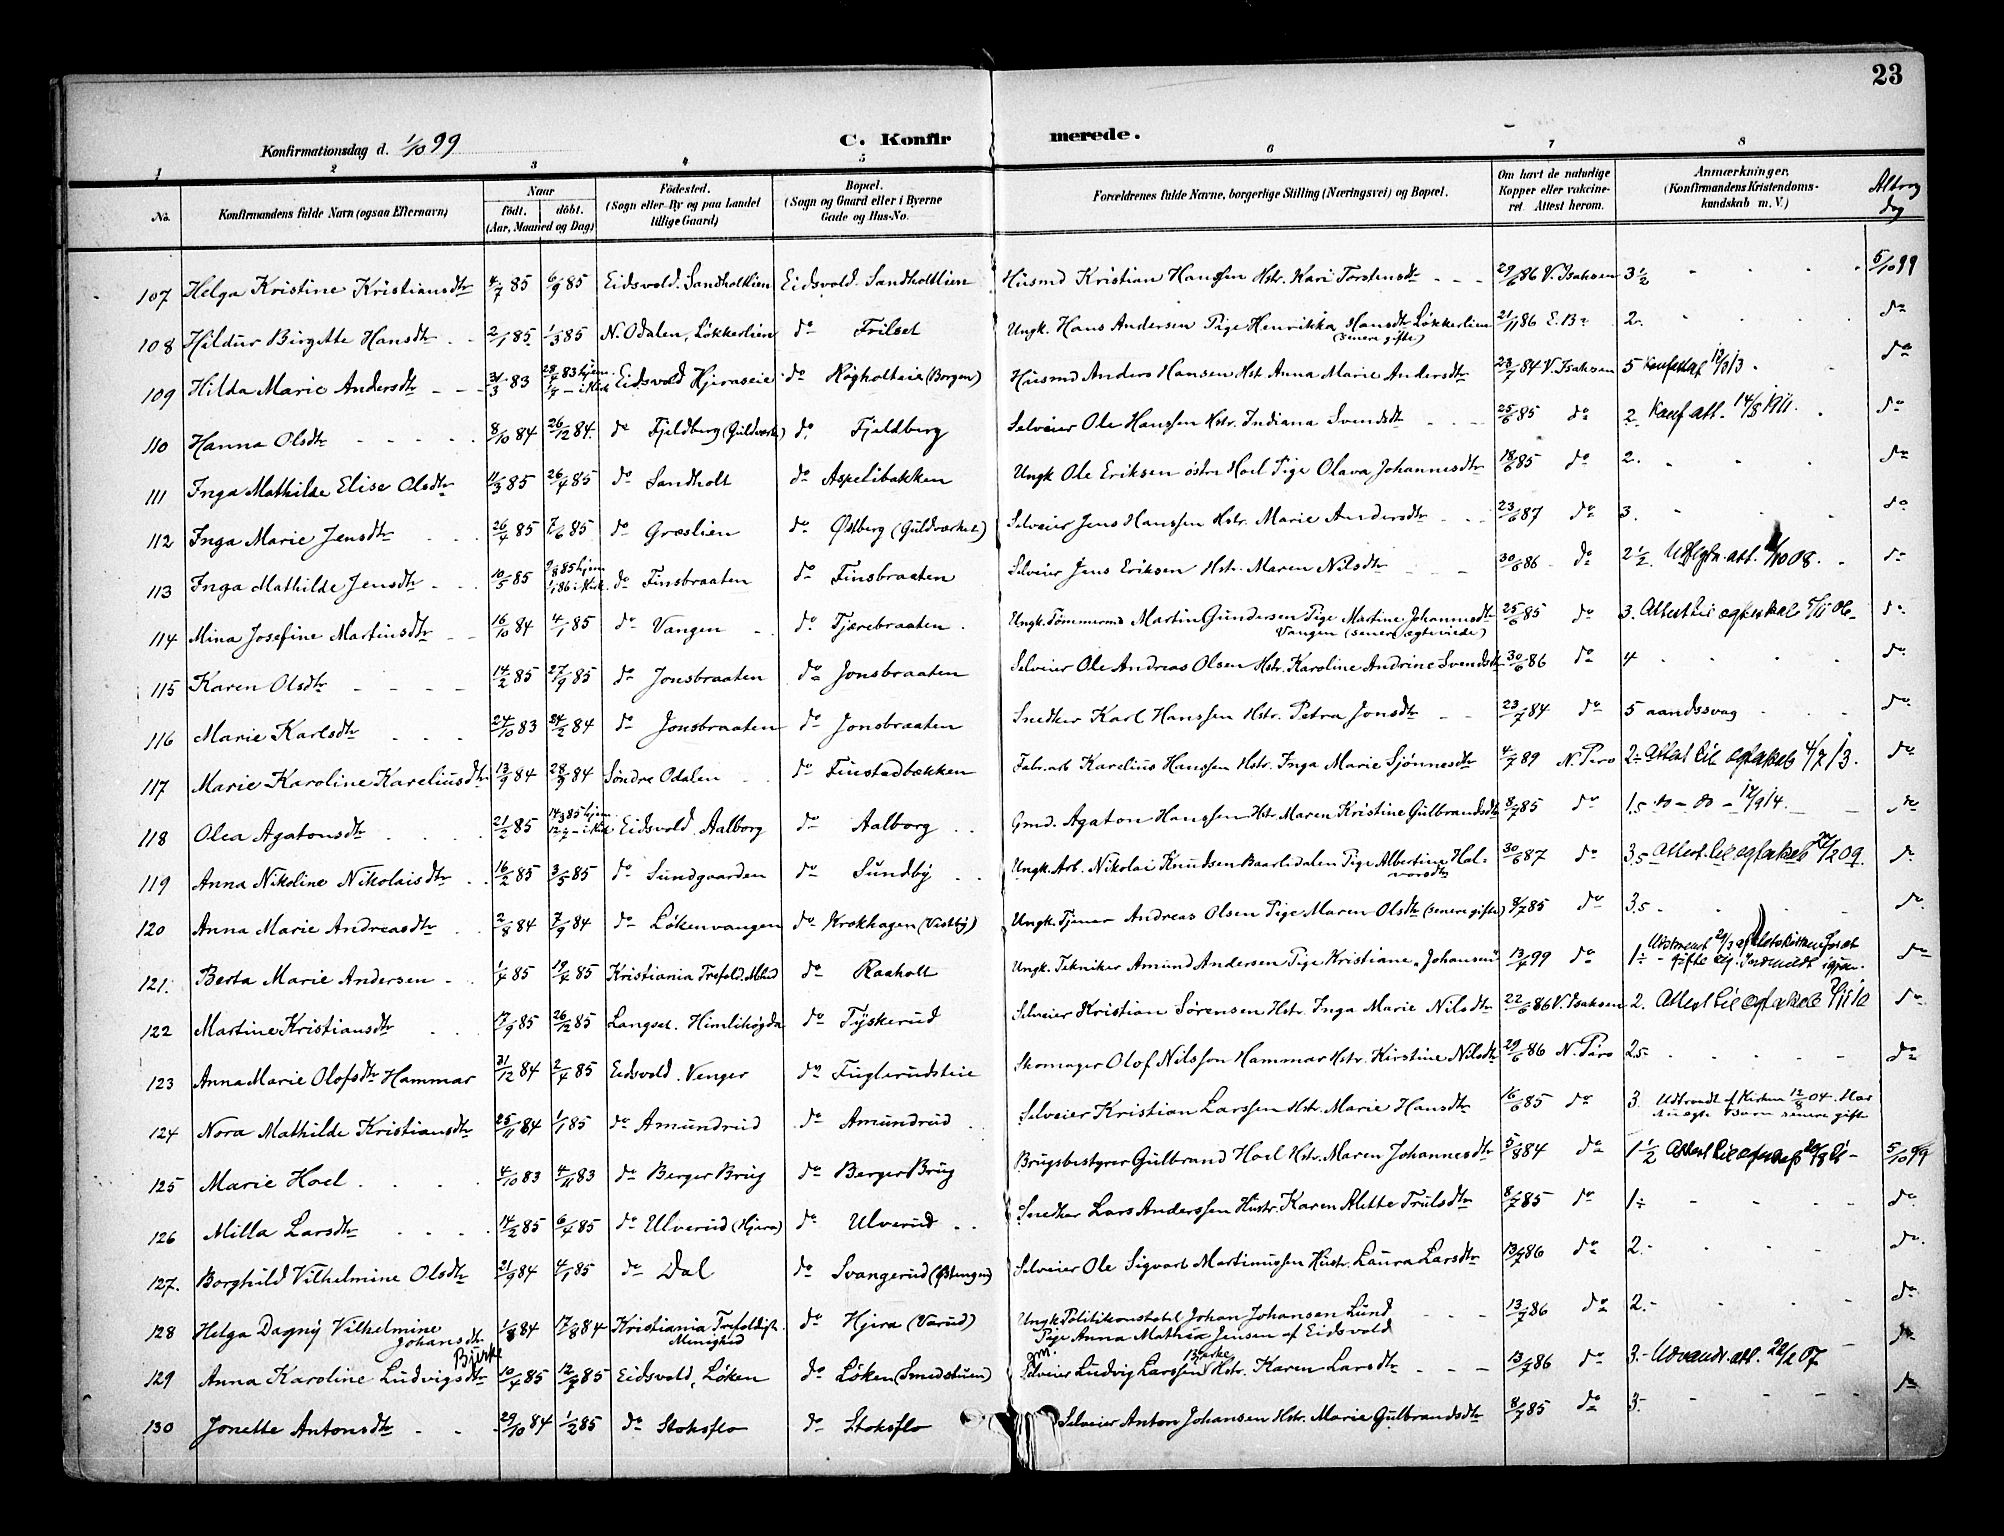 23
Konfirmationsdag d. 1/10 99
C. Konfirmerede.
1 2 3 4 5 6 7 8
No. Konfirmandens fulde Navn (ogsaa Efternavn) Naar født. døbt. (Aar, Maaned og Dag) Fødested. (Sogn eller By og paa Landet tillige Gaard) Bopæl. (Sogn og Gaard eller i Byerne Gade og Hus-No. Forældrenes fulde Navne, borgerlige Stilling (Næringsvei) og Bopæl. Om havt de naturlige Kopper eller vakcineret. Attest herom. Anmærkninger, (Konfirmandens Kristendomskundskab m. V.)
107 Helga Kristine Kristiansdtr 4/7 85 6/9 85 Eidsvold. Sandholtlien Eidsvold. Sandholtlien Husmd Kristian Hanssen Hstr. Kari Torstensdtr 29/6 86 V. Isaksen 3 1/2 5/10 99
108 Hildur Birgitte Hansdtr 2/1 85 1/3 85 N. Odalen, Løkkerlien do Frilset Ungk. Hans Andersen Pige Henrikka Hansdtr Løkkerlien (senere gifte) 21/11 86 2. do
109 Hilda Marie Andersdtr 31/3 83 28/4 83 hjem. Eidsvold Hjeraseie do Høgholteie (Borgen) Husmd Anders Hansen Hst Anna Marie Andersdtr 23/7 84 V. Isaksen 5 do
110 Hanna Olsdtr 8/10 84 26/12 84 do Fjeldberg (Guldverket) do Fjeldberg Selveier Ole Hanssen Hstr. Indiana Svendsdtr 25/6 85 do 2. Konf att. 14/8 1911. do
111 Inga Mathilde Elise Olsdtr 11/3 85 26/4 85 do Sandholt do Aspelibakken Ungk Ole Eriksen østre Hoel Pige Olava Johannesdtr 18/6 85 do 2. do
112 Inga Marie Jensdtr 26/4 85 7/6 85 do Græslien do Østberg (Guldværket) Selveier Jens Hanssen Hstr. Marie Andersdtr 23/6 87 do 3. do
113 Inga Mathilde Jensdtr 10/5 85 9/8 85 hjem 1/1 86 i Kirk do Finsbraaten do Finsbraaten Selveier Jens Eriksen Hstr. Maren Nilsdtr 30/6 86 do 2 1/2 do
114 Mina Josefine Martinsdtr 16/10 84 4/1 85 do Vangen do Tjærebraaten Ungk. Tømmermd Martin Gundersen Pige Martine Johannesdtr Vangen (senere ægteviede) 25/6 85 do 3. Attest til ægteskab 5/11 06 do
115 Karen Olsdtr 14/2 85 27/9 85 do Jonsbraaten do Jonsbraaten Selveier Ole Andreas Olsen Hstr. Karoline Andrine Svendsdtr 30/6 86 do 4 do
116 Marie Karlsdtr 24/10 83 24/2 84 do Jonsbraaten do Jonsbraaten Snedker Karl Hanssen Hstr. Petra Jonsdtr 23/7 84 do 5 aandssvag do
117 Marie Karoline Kareliusdtr 13/9 84 28/9 84 Søndre Odalen do Finstadbækken Fabr.arb Karelius Hanssen Hstr. Inga Marie Sjønnesdtr 4/7 89 N. Piro 2- Attest til ægteskab 4/7 13. do
118 Olea Agatonsdtr 21/2 85 14/3 85 hjem Eidsvold Aalborg do Aalborg Gmd. Agaton Hanssen Hstr. Maren Kristine Gulbrandsdtr 8/7 85 do 1.5 do - do - 12/9 14. do
119 Anna Nikoline Nikolaisdtr 16/2 85 3/5 85 do Sundgaarden do Sundby Ungk. Arb. Nikolai Knudsen Baarlidalen Pige Albertine Halvorsdtr 30/6 87 do 3.5 Attest til ægteskab 27/2 09. do
120 Anna Marie Andreasdtr 2/8 84 7/9 84 do Løkenvangen do Krokhagen (Visthøj) Ungk. Tjener Andreas Olsen Pige Maren Olsdtr (senere gifte) 8/7 85 do 3.5 do
121. Berta Marie Andersen 1/4 85 19/4 85 Kristiania Trefold. Mhed do Raaholt Ungk. Tekniker Amund Andersen Pige Kristiane Johansen 13/4 99 do 1÷ do
122 Martine Kristiansdtr 17/9 85 26/12 85 Langset. Himlihøgda do Tyskerud Selveier Kristian Sørensen Hstr. Inga Marie Nilsdtr 22/6 86 V. Isaksen 2. Attest til ægteskab do
123 Anna Marie Olofsdtr Hammar 31/12 84 2/4 85 Eidsvold. Venger do Fuglerudsteie Skomager Olof Nilsson Hammar Hstr. Kirstine Nilsdtr 29/6 86 N. Piro 2.5- do
124 Nora Mathilde Kristiansdtr 25/11 84 1/1 85 do Amundrud do Amundrud Selveier Kristian Larssen Hstr. Marie Hansdtr 16/6 85 do 3. Udtraadt af Kirken 12/9 04. Har uægte Barn senere gifte
125 Marie Hoel 4/10 83 4/11 83 do Berger Brug do Berger Brug Brugsbestyrer Gulbrand Hoel Hstr. Maren Johannesdtr 5/8 84 do 1 1/2 Attest til ægteskab 5/10 99
126 Milla Larsdtr 14/2 85 6/4 85 do Ulverud (Hjera) do Ulverud Snedker Lars Anderssen Hustr. Karen Alette Trulsdtr 8/7 85 do 1÷ do
127. Borghild Vilhelmine Olsdtr 21/9 84 4/1 85 do Dal do Svangerud (Østengen) Selveier Ole Sigvart Martinussen Hustr. Laura Larsdtr 13/7 86 do 2.- do
128 Helga Dagny Vilhelmine Johansdtr 1/8 84 17/8 84 Kristiania Trefoldigh. Menighed do Hjera (Varud) Ungk Politikonstabel Johan Johansen Lund Pige Anna Mathea Jensen af Eidsvold 13/7 86 do 2.- do
129 Anna Karoline Ludvigsdtr Bjerke 10/4 85 12/7 85 Eidsvold, Løken do Løken (Smedstuen) Selveier Ludvig Larssen Bjerke Hstr. Karen Larsdtr 13/7 86 do 3.- Udvandr. att. 22/2 07 do
130 Jonette Antonsdtr 29/10 84 1/2 85 do Stoksflo do Stoksflo Selveier Anton Johansen Hstr. Marie Gulbrandsdtr 8/7 85 do 3- do